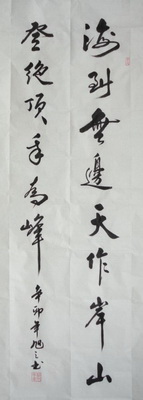 海到無邊天作岸山
登絕頂我為峰
辛卯年旭之书